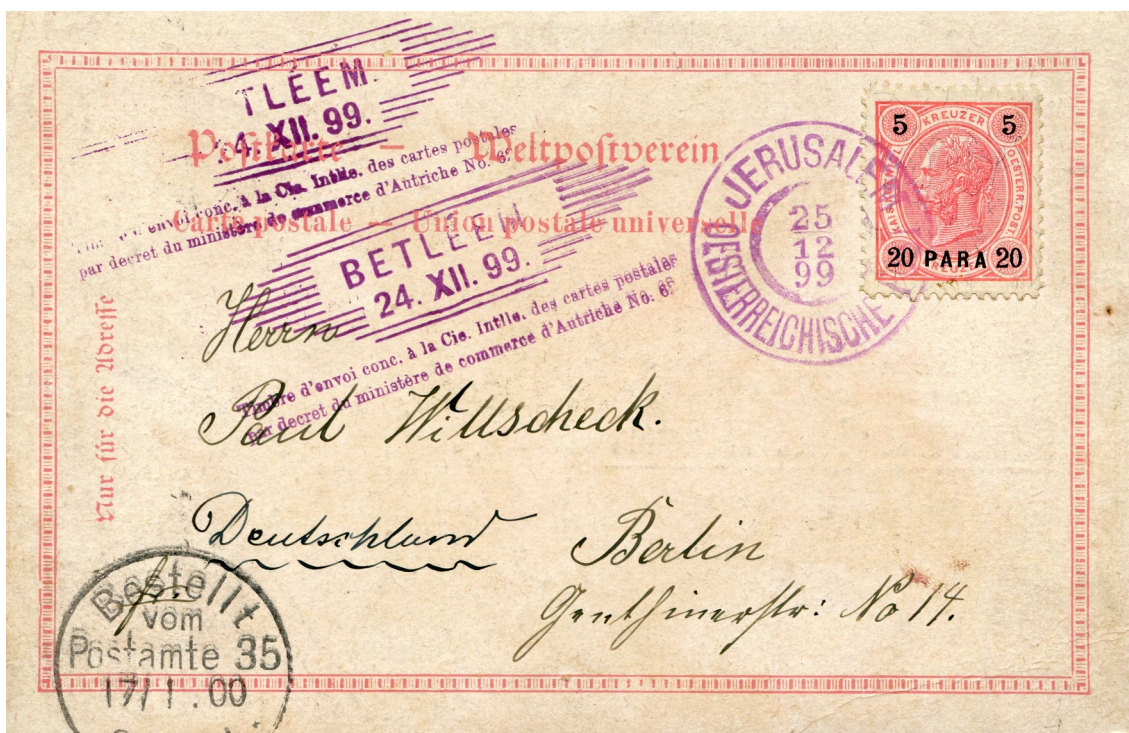 TLEEM
24. XII. 99.
Postkarte — Weltpostverein
envoi conc. à la Cie. Intlle. des cartes postales
par decret du ministère de commerce d'Autriche No. 6
Carte postale — Union postale universelle
BETLEEM
24. XII. 99.
Timbre d'envoi conc. à la Cie. Intlle. des cartes postales
par decret du ministère de commerce d'Autriche No. 6
JERUSALEM
25
12
99
OESTERREICHISCHE
5 KREUZER 5
OESTERR. POST
20 PARA 20
KREUZER
Nur für die Adresse
Herrn
Paul Willscheck.
Deutschland
Berlin
Genthinerstr: No 14.
Bestellt
vom
Postamte 35
17/1.00